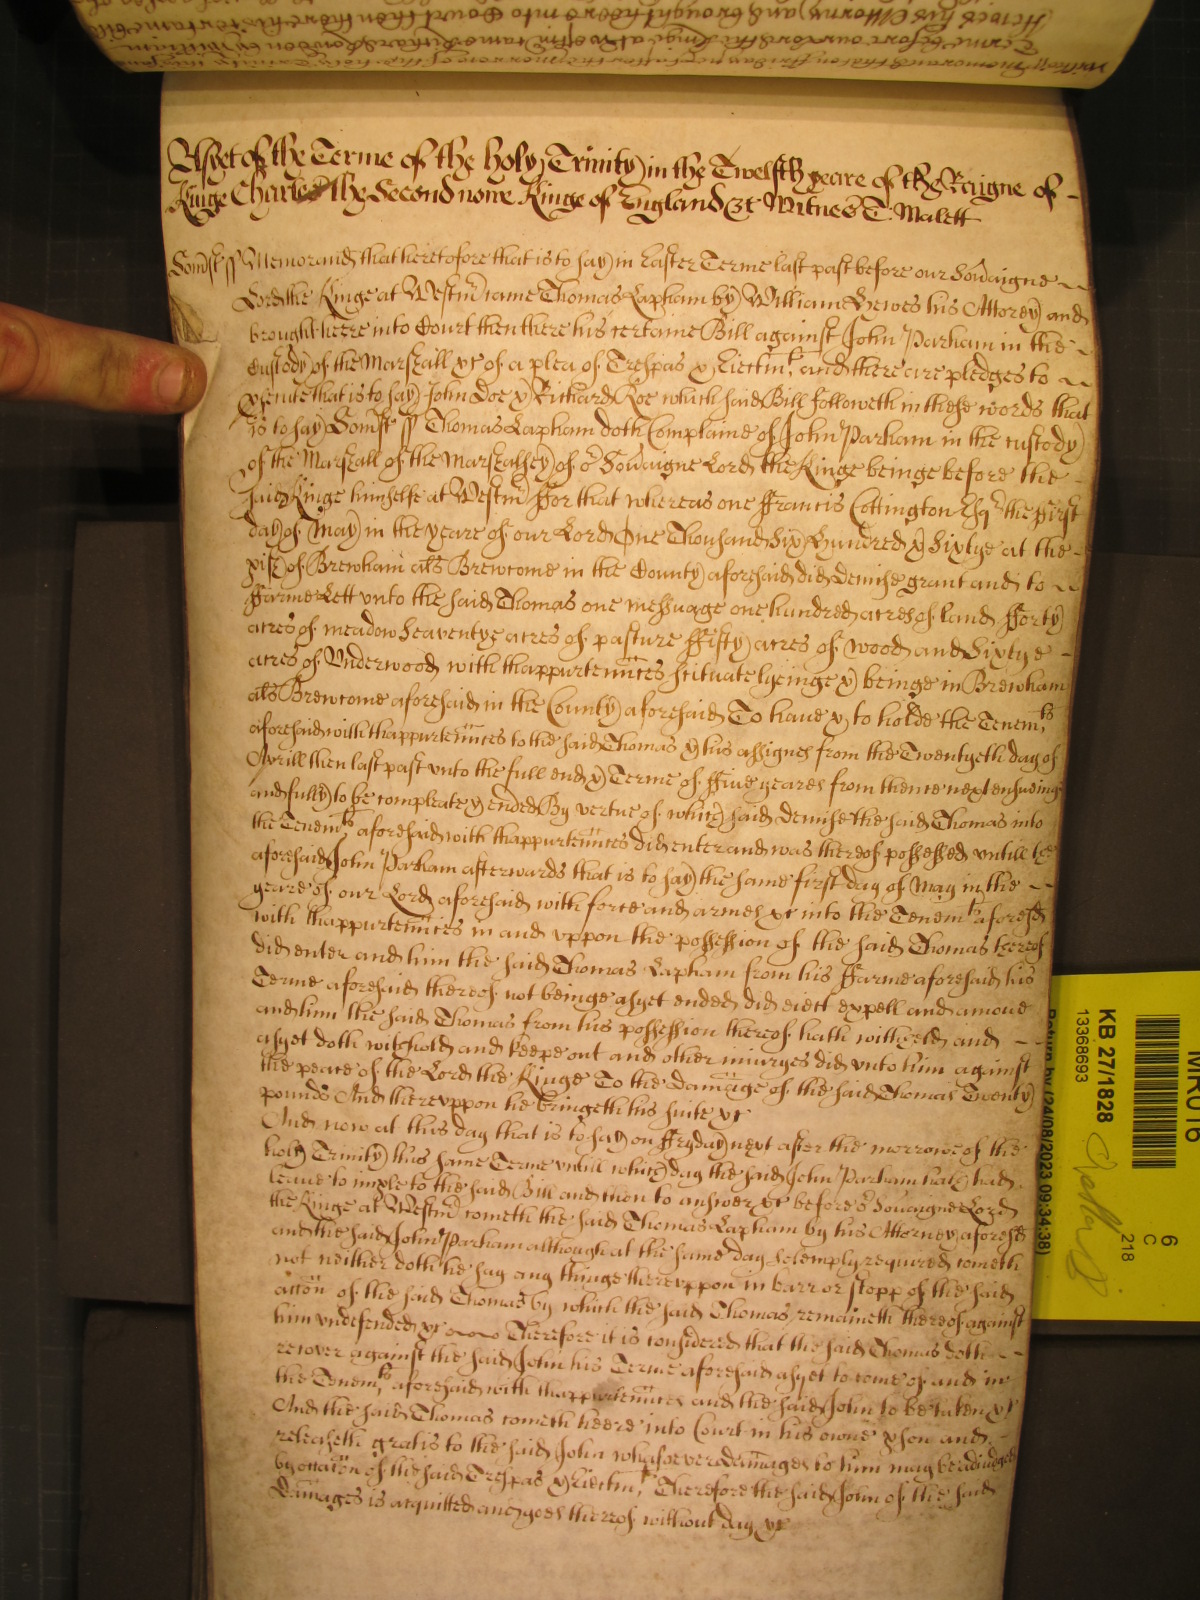 As yet of the Terme of the holy Trinity in the Twelfth yeare of the Raigne of
Kinge Charles the Second nowe Kinge of England &c Witnes T: Malett
Somst ss Memorand that heretofore that is to say in Easter Terme last past before our Sovaigne
Lord the Kinge at Westmr came Thomas Lapham by William Hewes his Attorney and
brought heere into Court then there his certaine Bill against John Parham in the
Custody of the Marshall &c of a plea of Trespas & Eiectmt and there are pledges to
psecute that is to say John Doe & Richard Roe which said Bill followeth in these words that
is to say Somst ss Thomas Lapham doth Complaine of John Parham in the custody
of the Marshall of the Marshalsey of or Sovaigne Lord the Kinge beinge before the
said Kinge himselfe at Westmr ffor that whereas one ffrancis Cottington Esqr the first
day of May in the yeare of our Lord One Thousand Six Hundred & Sixtye at the
pish of Brewham als Brewcome in the County aforesaid did demise grant and to
ffarme Lett unto the said Thomas one messuage one hundred acres of land fforty
acres of meadow Seaventye acres of pasture ffifty acres of wood and Sixtye
acres of Underwood with thappurtennces scituate lyeinge & beinge in Brewham
als Brewcome aforesaid in the County aforesaid To have & to holde the Tenemts
aforesaid with thappurtennces to the said Thomas & his assignes from the Twentyeth day of
Aprill then last past unto the full end & Terme of ffive yeares from thence next ensueing
and fully to be compleate & ended By vertue of which said demise the said Thomas into
the Tenemts aforesaid with thappurtennces did enter and was thereof possessed untill the
aforesaid John Parham afterwards that is to say the same first day of May in the
yeare of our Lord aforesaid with force and armes &c into the Tenemts aforesd
with thappurtennces in and uppon the possession of the said Thomas thereof
did enter and him the said Thomas Lapham from his ffarme aforesaid his
Terme aforesaid thereof not beinge as yet ended did eiect expell and amove
and him the said Thomas from his possession thereof hath witheld and
as yet doth withhold and keepe out and other iniuryes did unto him against
the peace of the Lord the Kinge To the damage of the said Thomas Twenty
pounds And thereuppon he bringeth his suite &c
And now at this day that is to say on ffryday next after the morrowe of the
holy Trinity this same Terme untill which day the said John Parham hath had
leave to imple to the said Bill and then to answer &c before or Sovaigne Lord
the Kinge at Westmr cometh the said Thomas Lapham by his Attorney aforesd
and the said John Parham although at the same day solemply required cometh
not neither doth he say any thinge thereuppon in barr or stopp of the said
accon of the said Thomas by which the said Thomas remaineth thereof against
him undefended &c Therefore it is considered that the said Thomas doth
recover against the said John his Terme aforesaid as yet to come of and in
the Tenemts aforesaid with thappurtennces and the said John to be taken &c
And the said Thomas cometh heere into Court in his owne pson and
releaseth gratis to the said John whatsoever damages to him may be adiudged
by occacon of the said Trespas & Eiectmt Therefore the said John of the said
Damages is acquitted and goes thereof without day &c
MR016
6
C
KB 27/1828
13368693
218
Return by (24/08/2023 09:34:38)